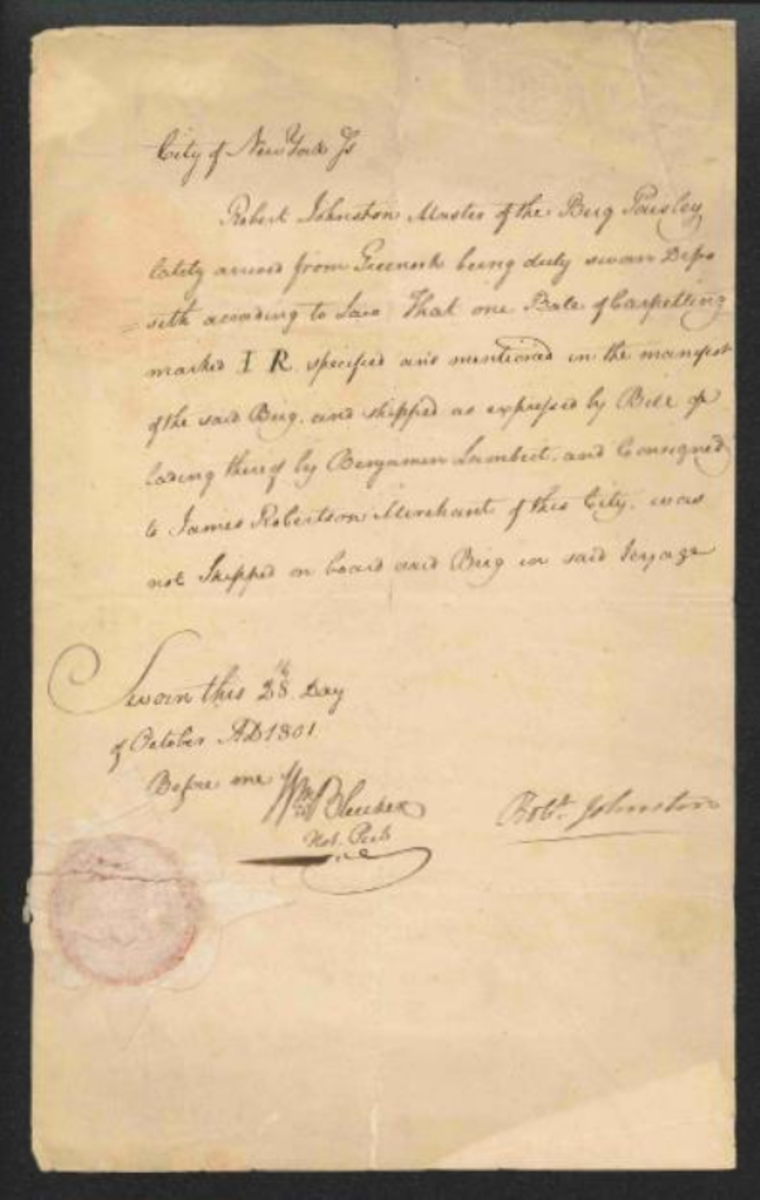 City of New York Ss
Robert Johnston Master of the Brig Paisley
lately arrived from Greenock being duly sworn Depo
seth according to Law That one Bale of Carpetting
marked I R specified and mentioned in the manifest
of the said Brig, and shipped as expressed by Bill of
lading thereof by Benjamin Lambert, and Consigned
to James Robertson Merchant of this City, was
not Shipped on board said Brig in said Voyage
Sworn this 28th Day
of October AD 1801
Before me
Wm Bleecker
Not. Pub
Robt. Johnston